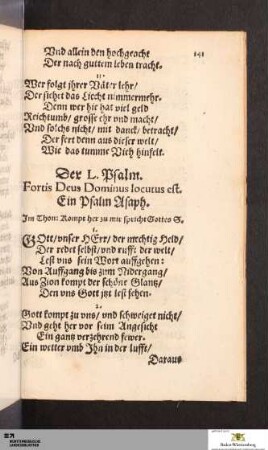 Vnd allein den hochgeacht
141
Der nach guttem leben tracht.
11.
Wer folgt jhrer Vätter lehr/
Der sichet das Liecht nimmermehr.
Denn wer hie hat viel geld
Reichtumb/ grosse ehr vnd macht/
Vnd solchs nicht/ mit danck/ betracht/
Der fert denn aus dieser welt/
Wie das tumme Vieh hinfelt.
Der L. Psalm.
Fortis Deus Dominus locutus est.
Ein Psalm Asaph.
Im Thon: Kompt her zu mir spricht Gottes S.
1.
GOtt/vnser HErr/ der mechtig Held/
Der redet selbst/vnd rufft der welt/
Lest vns sein Wort auffgehen:
Von Auffgang bis zum Nidergang/
Aus Zion kompt der schöne Glantz/
Den vns Gott jtzt lest sehen.
2.
Gott kompt zu vns/ vnd schweiget nicht/
Vnd geht her vor seim Angesicht
Ein gantz verzehrend fewer.
Ein wetter vmb Jhn in der lufft/
Daraus
Baden-Württemberg